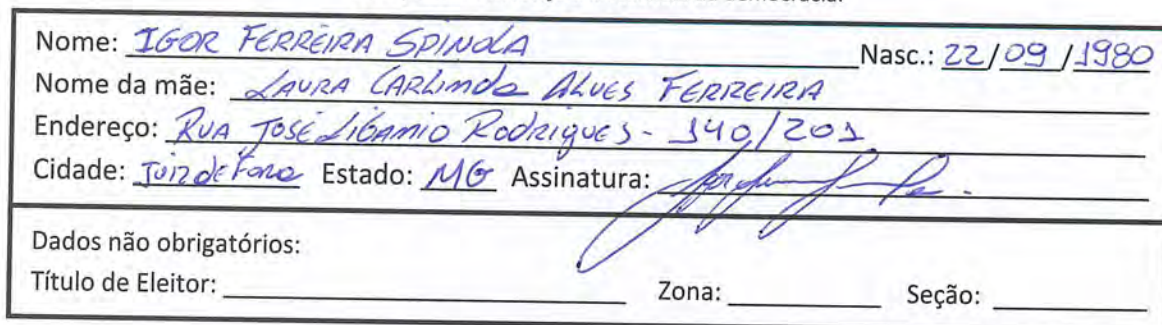 democracia.
Nome: IGOR FERREIRA SPINOLA Nasc.: 22/09/1980
Nome da mãe: LAURA CARLINDA ALVES FERREIRA
Endereço: RUA JOSÉ LIBANIO RODRIGUES - 140/201
Cidade: JUIZ DE FORA Estado: MG Assinatura:
Dados não obrigatórios:
Título de Eleitor: Zona: Seção: